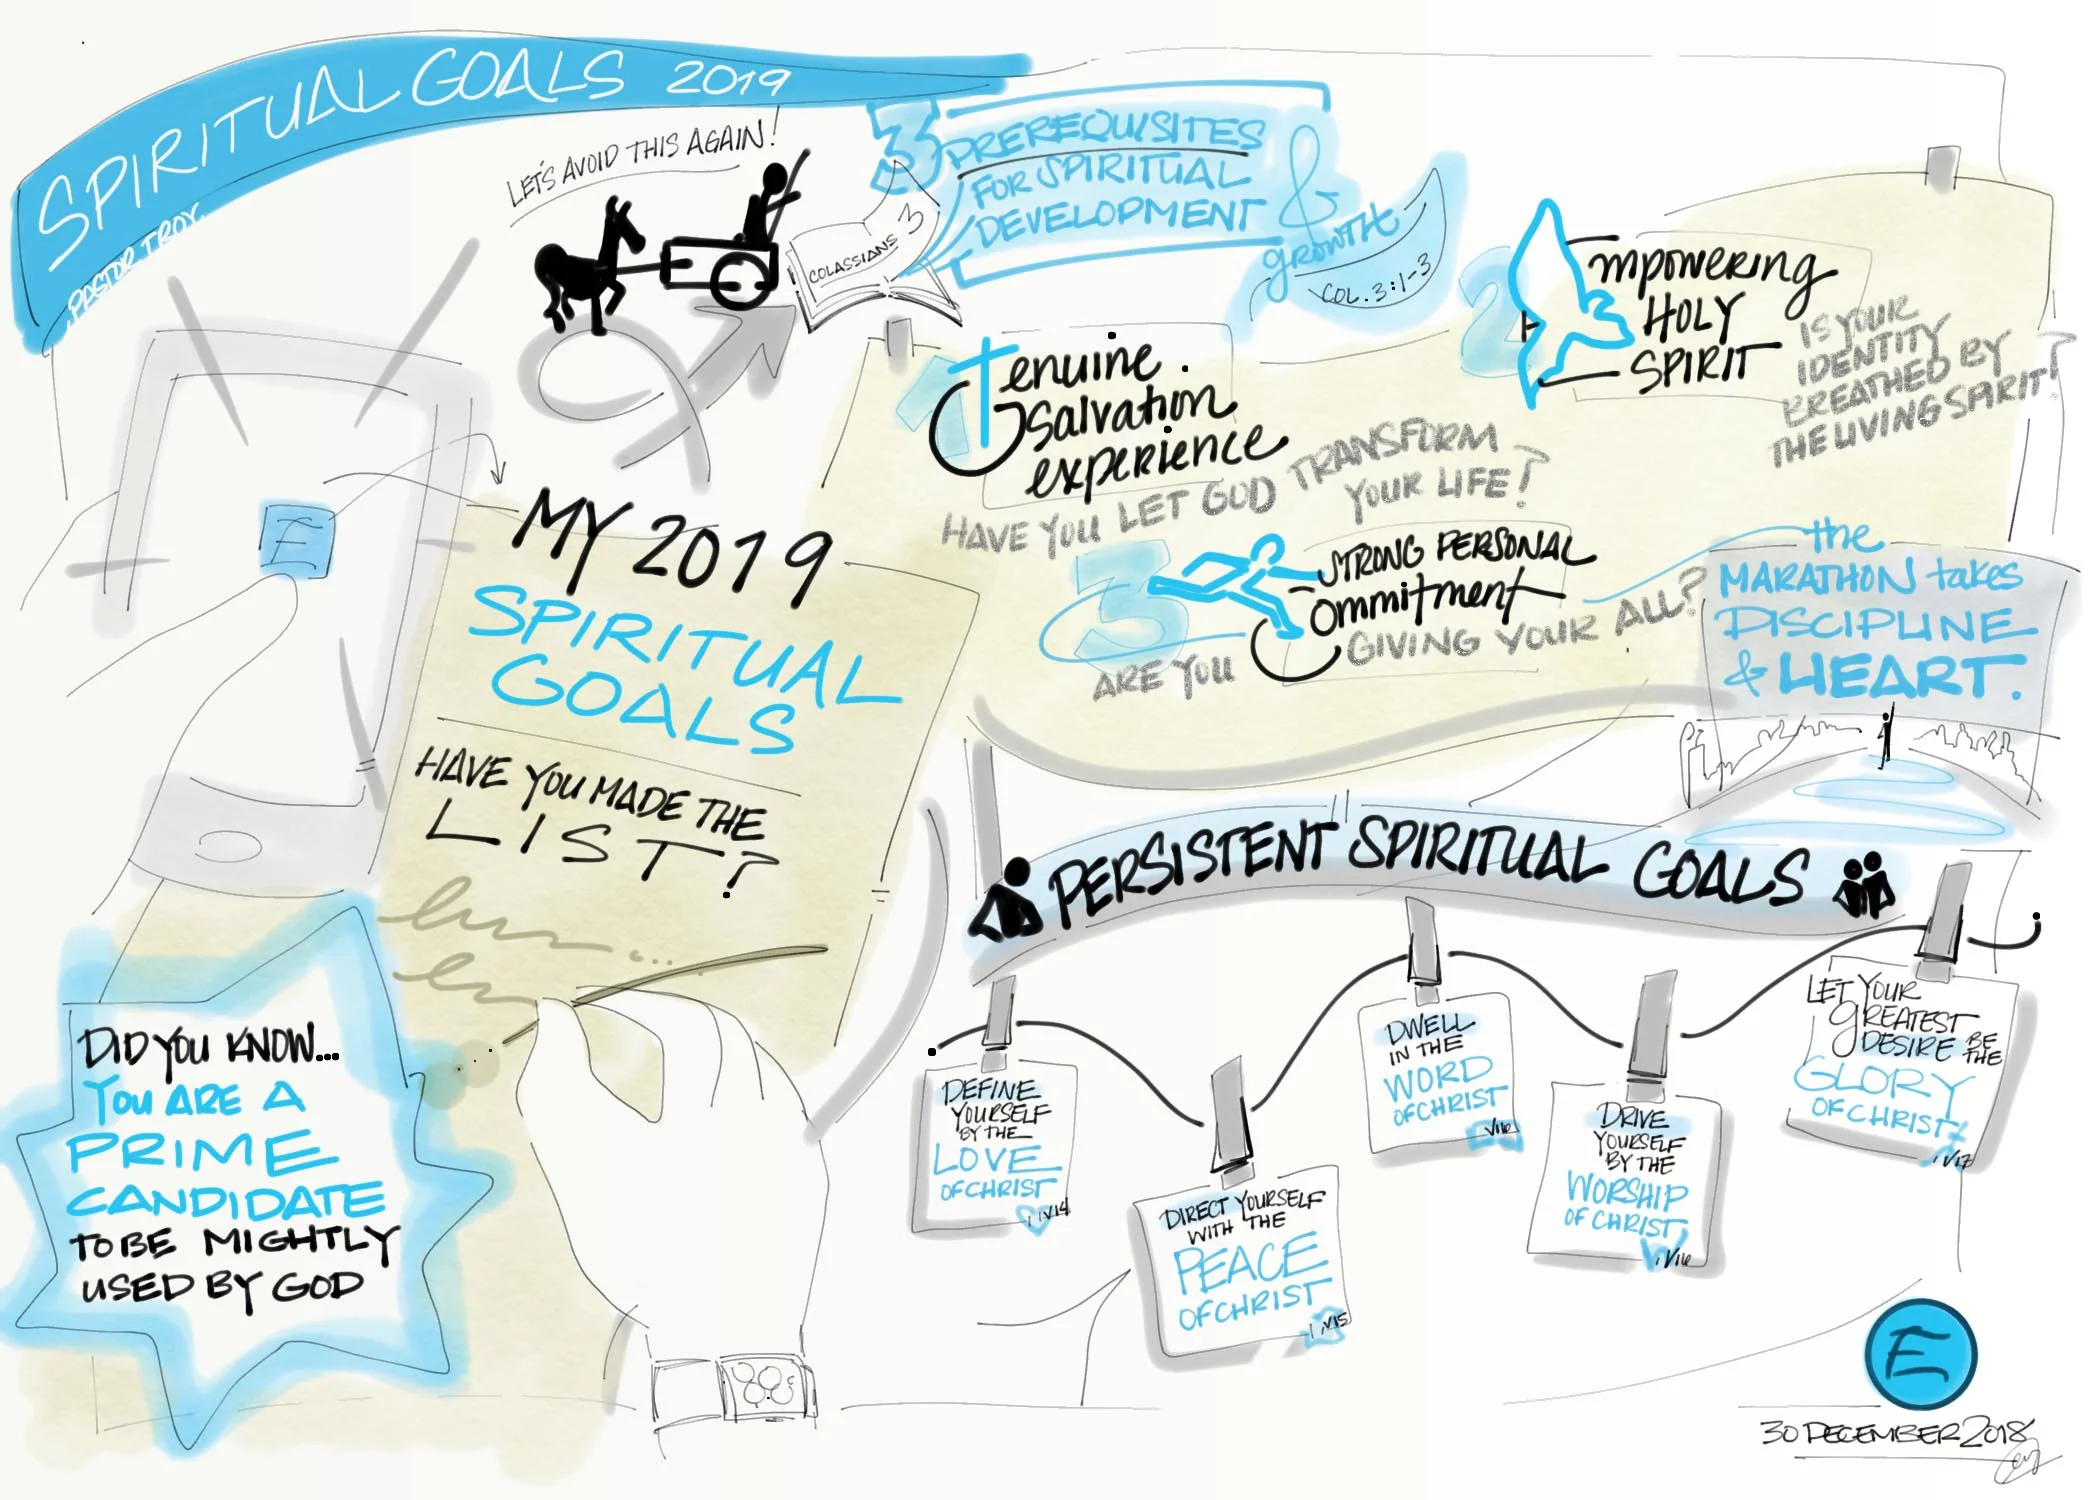 SPIRITUAL GOALS 2019
PASTOR TROY
LET'S AVOID THIS AGAIN!
COLASSIANS 3
3 PREREQUISITES
FOR SPIRITUAL
DEVELOPMENT
&
growth
COL. 3:1-3
1
Genuine
Salvation
experience
HAVE YOU LET GOD TRANSFORM
YOUR LIFE?
2
Empowering
HOLY
SPIRIT
IS YOUR
IDENTITY
BREATHED BY
THE LIVING SPIRIT?
3
STRONG PERSONAL
Commitment
ARE YOU GIVING YOUR ALL?
the
MARATHON takes
DISCIPLINE
& HEART.
E
MY 2019
SPIRITUAL
GOALS
HAVE YOU MADE THE
LIST?
DID YOU KNOW...
YOU ARE A
PRIME
CANDIDATE
TO BE MIGHTLY
USED BY GOD
PERSISTENT SPIRITUAL GOALS
DEFINE
YOURSELF
BY THE
LOVE
OF CHRIST
V14
DIRECT YOURSELF
WITH THE
PEACE
OF CHRIST
V15
DWELL
IN THE
WORD
OF CHRIST
V16
DRIVE
YOURSELF
BY THE
WORSHIP
OF CHRIST
V16
LET YOUR
GREATEST
DESIRE BE THE
GLORY
OF CHRIST
V17
E
30 DECEMBER 2018